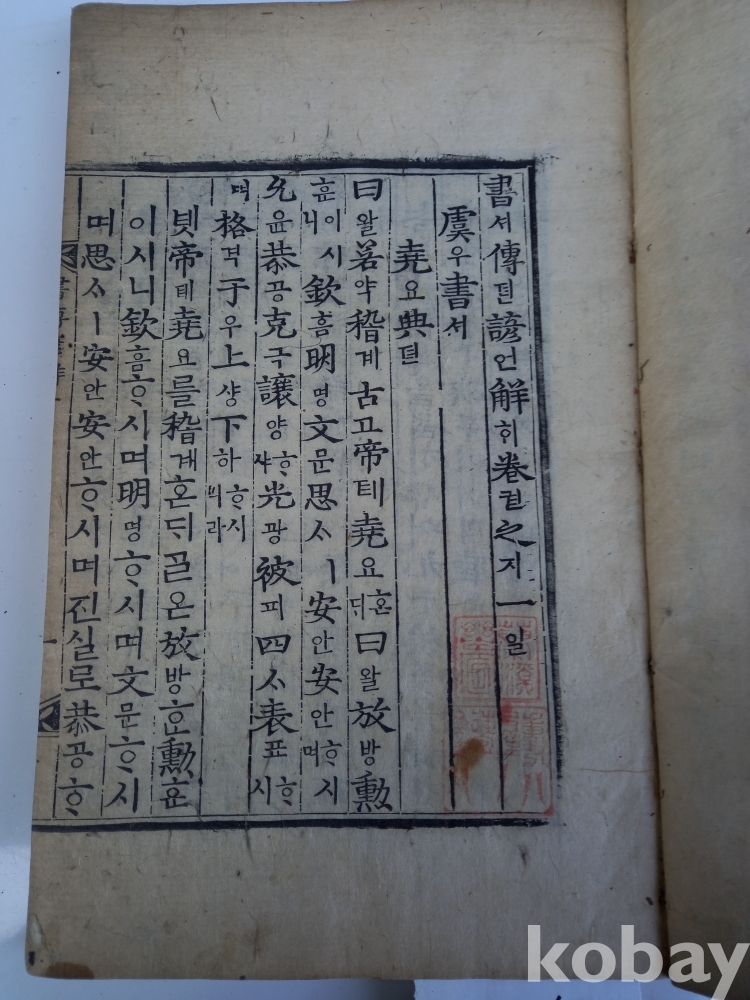 書셔傳뎐諺언解ᄒᆡ卷권之지一일
虞우書셔
堯요典뎐
曰왈若약稽계古고帝뎨堯요혼ᄃᆡ曰왈放방勳
훈이시니欽흠明명文문思ᄉᆞㅣ安안安안ᄒᆞ시며
允윤恭공克극讓양ᄒᆞ샤光광被피四ᄉᆞ表표ᄒᆞ시
며格격于우上샹下하ᄒᆞ시니라
녯帝뎨堯요를稽계혼ᄃᆡ ᄀᆞᆯ온放방ᄒᆞᆫ勳훈
이시니欽흠ᄒᆞ시며明명ᄒᆞ시며文문ᄒᆞ시
며思ᄉᆞㅣ安안安안ᄒᆞ시며진실로恭공ᄒᆞ
kobay